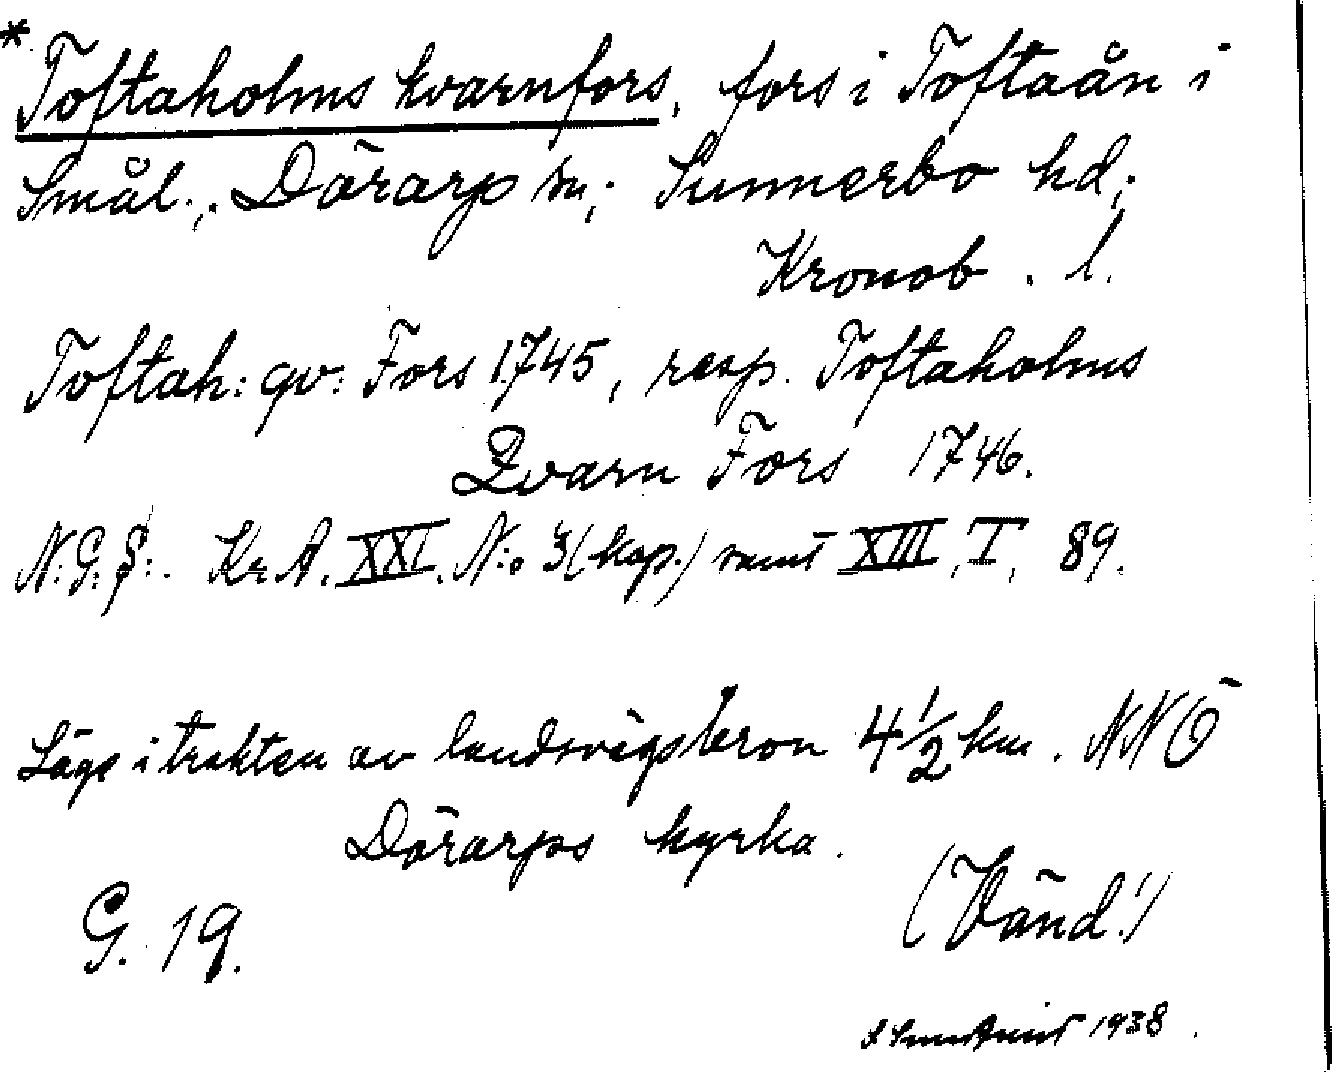 * Toftaholms kvarnfors, fors i Toftaån i
Smål.; Dörarp sn; Sunnerbo hd;
Kronob. l.
Toftah: qv: Fors 1745, resp. Toftaholms
Qvarn Fors 1746.
N:G:S:. Kr. A. XXI. N:o 3 (kop.) samt XIII, I, 89.
Läge i trakten av landsvägsbron 4 1/2 km. NNÖ
Dörarps kyrka.
(Vänd!)
G. 19.
1938.